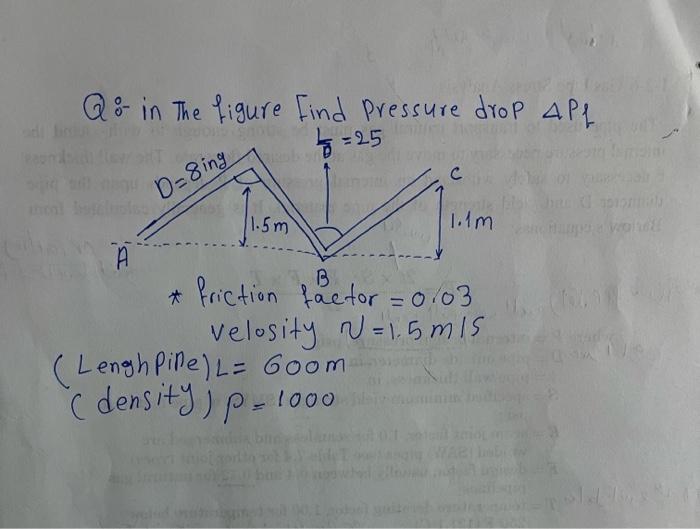 Q:- in The figure Find Pressure drop ΔPf
L/D = 25
D=8ing
C
1.5m
1.1m
A
B
* friction factor = 0.03
velosity V = 1.5 m/s
(Lengh Pipe) L = 600m
(density) ρ = 1000